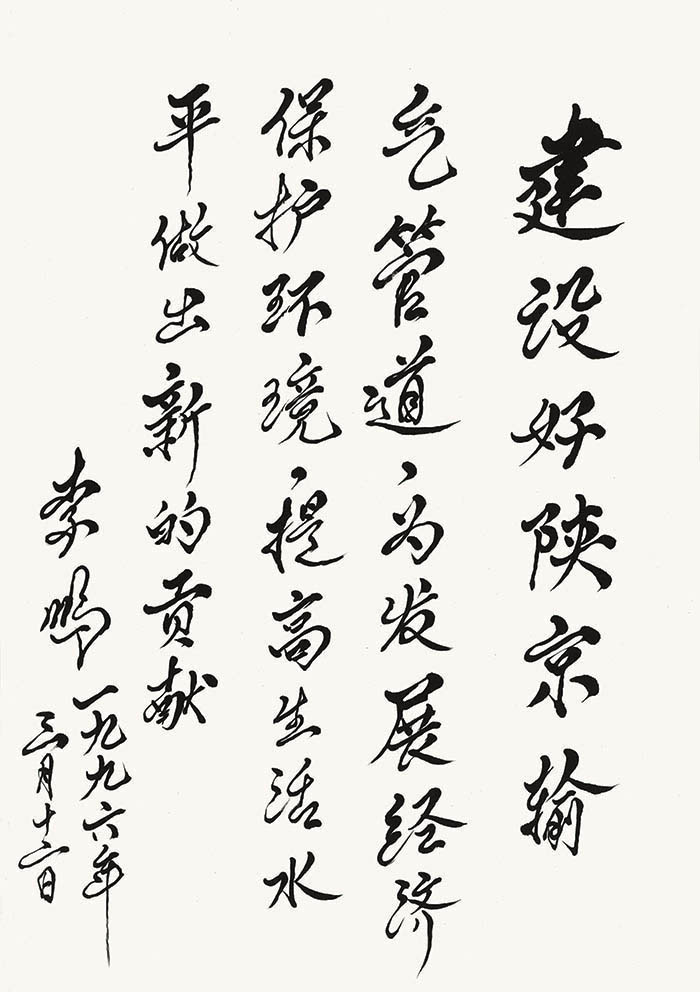 建设好陕京输
气管道、为发展经济
保护环境、提高生活水
平做出新的贡献
李鹏
一九九六年
三月十六日